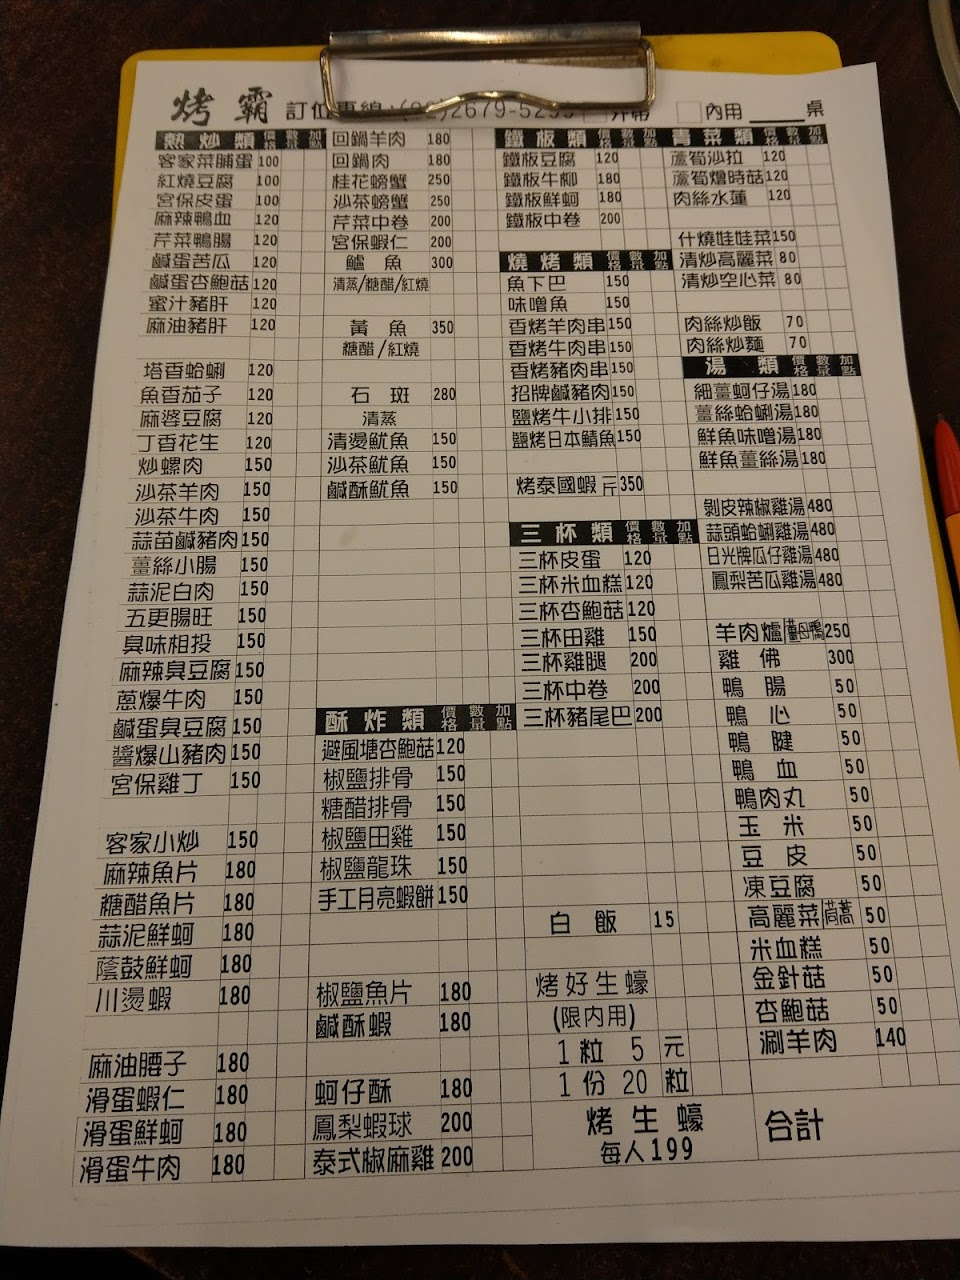 烤霸 訂位專線:(02)2679-5299 外帶 內用 桌
熱炒類 價格 數量 加點
客家菜脯蛋 100
紅燒豆腐 100
宮保皮蛋 100
麻辣鴨血 120
芹菜鴨腸 120
鹹蛋苦瓜 120
鹹蛋杏鮑菇 120
蜜汁豬肝 120
麻油豬肝 120
塔香蛤蜊 120
魚香茄子 120
麻婆豆腐 120
丁香花生 120
炒螺肉 150
沙茶羊肉 150
沙茶牛肉 150
蒜苗鹹豬肉 150
薑絲小腸 150
蒜泥白肉 150
五更腸旺 150
臭味相投 150
麻辣臭豆腐 150
蔥爆牛肉 150
鹹蛋臭豆腐 150
醬爆山豬肉 150
宮保雞丁 150
客家小炒 150
麻辣魚片 180
糖醋魚片 180
蒜泥鮮蚵 180
蔭鼓鮮蚵 180
川燙蝦 180
麻油腰子 180
滑蛋蝦仁 180
滑蛋鮮蚵 180
滑蛋牛肉 180
回鍋羊肉 180
回鍋肉 180
桂花螃蟹 250
沙茶螃蟹 250
芹菜中卷 200
宮保蝦仁 200
鱸魚 300
清蒸/糖醋/紅燒
黃魚 350
糖醋/紅燒
石斑 280
清蒸
清燙魷魚 150
沙茶魷魚 150
鹹酥魷魚 150
酥炸類 價格 數量 加點
避風塘杏鮑菇 120
椒鹽排骨 150
糖醋排骨 150
椒鹽田雞 150
椒鹽龍珠 150
手工月亮蝦餅 150
椒鹽魚片 180
鹹酥蝦 180
蚵仔酥 180
鳳梨蝦球 200
泰式椒麻雞 200
鐵板類 價格 數量 加點
鐵板豆腐 120
鐵板牛柳 180
鐵板鮮蚵 180
鐵板中卷 200
燒烤類 價格 數量 加點
魚下巴 150
味噌魚 150
香烤羊肉串 150
香烤牛肉串 150
香烤豬肉串 150
招牌鹹豬肉 150
鹽烤牛小排 150
鹽烤日本鯖魚 150
烤泰國蝦 一斤 350
三杯類 價格 數量 加點
三杯皮蛋 120
三杯米血糕 120
三杯杏鮑菇 120
三杯田雞 150
三杯雞腿 200
三杯中卷 200
三杯豬尾巴 200
白飯 15
烤好生蠔
(限內用)
1粒 5 元
1份 20 粒
烤生蠔
每人199
青菜類 價格 數量 加點
蘆筍沙拉 120
蘆筍燴時菇 120
肉絲水蓮 120
什燒娃娃菜 150
清炒高麗菜 80
清炒空心菜 80
肉絲炒飯 70
肉絲炒麵 70
湯類 價格 數量 加點
細薑蚵仔湯 180
薑絲蛤蜊湯 180
鮮魚味噌湯 180
鮮魚薑絲湯 180
剝皮辣椒雞湯 480
蒜頭蛤蜊雞湯 480
日光牌瓜仔雞湯 480
鳳梨苦瓜雞湯 480
羊肉爐 薑母鴨 250
雞佛 300
鴨腸 50
鴨心 50
鴨腱 50
鴨血 50
鴨肉丸 50
玉米 50
豆皮 50
凍豆腐 50
高麗菜 茼蒿 50
米血糕 50
金針菇 50
杏鮑菇 50
涮羊肉 140
合計